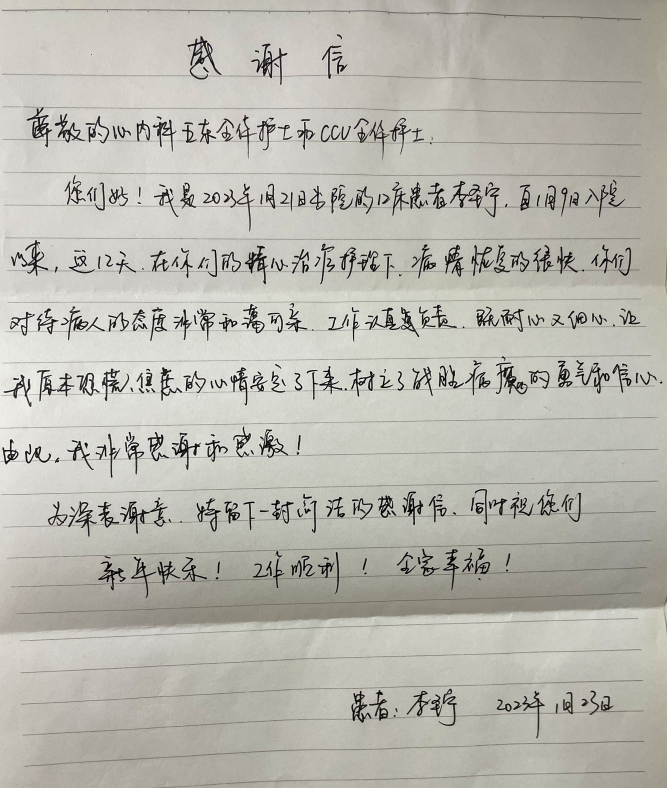 感谢信
尊敬的心内科五东全体护士和CCU全体护士:
您们好！我是2023年1月21日出院的12床患者李宁，自1月9日入院
以来，这12天，在你们的精心治疗护理下，病情恢复的很快，你们
对待病人的态度非常和蔼可亲，工作认真负责，既耐心又细心，让
我原本恐慌、焦虑的心情安定了下来，树立了战胜病魔的勇气和信心.
由此，我非常感谢和感激！
为深表谢意，特留下一封简洁的感谢信，同时祝您们
新年快乐！ 工作顺利！ 全家幸福！
患者：李宁 2023年1月23日